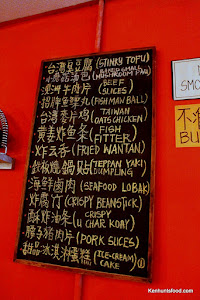 台湾臭豆腐 (STINKY TOFU)
(MUSHROOM
BEEF
(SLICES)
招牌魚 (FISHMAN BALL)
台灣麥片鸡 TAIWAN
(OATS CHICKEN)
黄姜炸魚条 FISH
(FITTER)
炸云吞 (FRIED WANTAN)
鉄板燒鍋貼 (TEPPAN YAKI
DUMPLING
海鲜卤肉 (SEAFOOD LOBAK)
炸腐竹 (CRISPY BEANSTICK)
酥炸油条 (CRISPY
U CHAR KOAY)
豬肉片 (PORK SLICES)
甜品冰淇淋蛋糕 (ICE-CREAM
CAKE)
NO
SMO
不准
BU
Kenhuntsfood.com